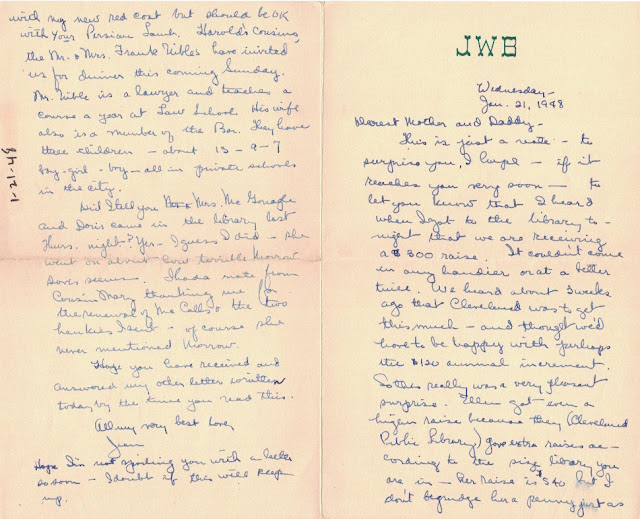 JWB
Wednesday -
Jan. 21, 1948
Dearest Mother and Daddy -
This is just a note - to
surprise you, I hope - if it
reaches you very soon - to
let you know that I heard
when I got to the library to-
night that we are receiving
a $300 raise. It couldn't come
in any handier or at a better
time. We heard about 3 weeks
ago that Cleveland was to get
this much - and thought we'd
have to be happy with perhaps
the $120 annual increment.
So this really was a very pleasant
surprise. Ellen got even a
bigger raise because they (Cleveland
Public Library) gave extra raises ac-
cording to the size library you
are in - her raise is $540 but I
don't begrudge her a penny just as
with my new red coat but should be OK
with your Persian Lamb. Harold's cousins,
the Mr. & Mrs. Frank Kibles have invited
us for dinner this coming Sunday.
Mr. Kible is a lawyer and teaches a
course a year at Law School. His wife
also is a member of the Bar. They have
three children - about 13 - 9 - 7
boy - girl - boy - all in private schools
in the city.
Did I tell you Mrs. Mc Gonagle
and Doris came in the library last
Thurs. night? Yes - I guess I did - she
went on about how terrible Morrow
Doris seems. I had a note from
Cousin Mary thanking me for
the renewal of Mc Calls & the two
hankies I sent - of course she
never mentioned Morrow.
Hope you have received and
answered my other letter written
today by the time you read this.
All my very best love,
Jean
Hope I'm not spoiling you with a letter
so soon - I doubt if this will keep
up.
1-21-48